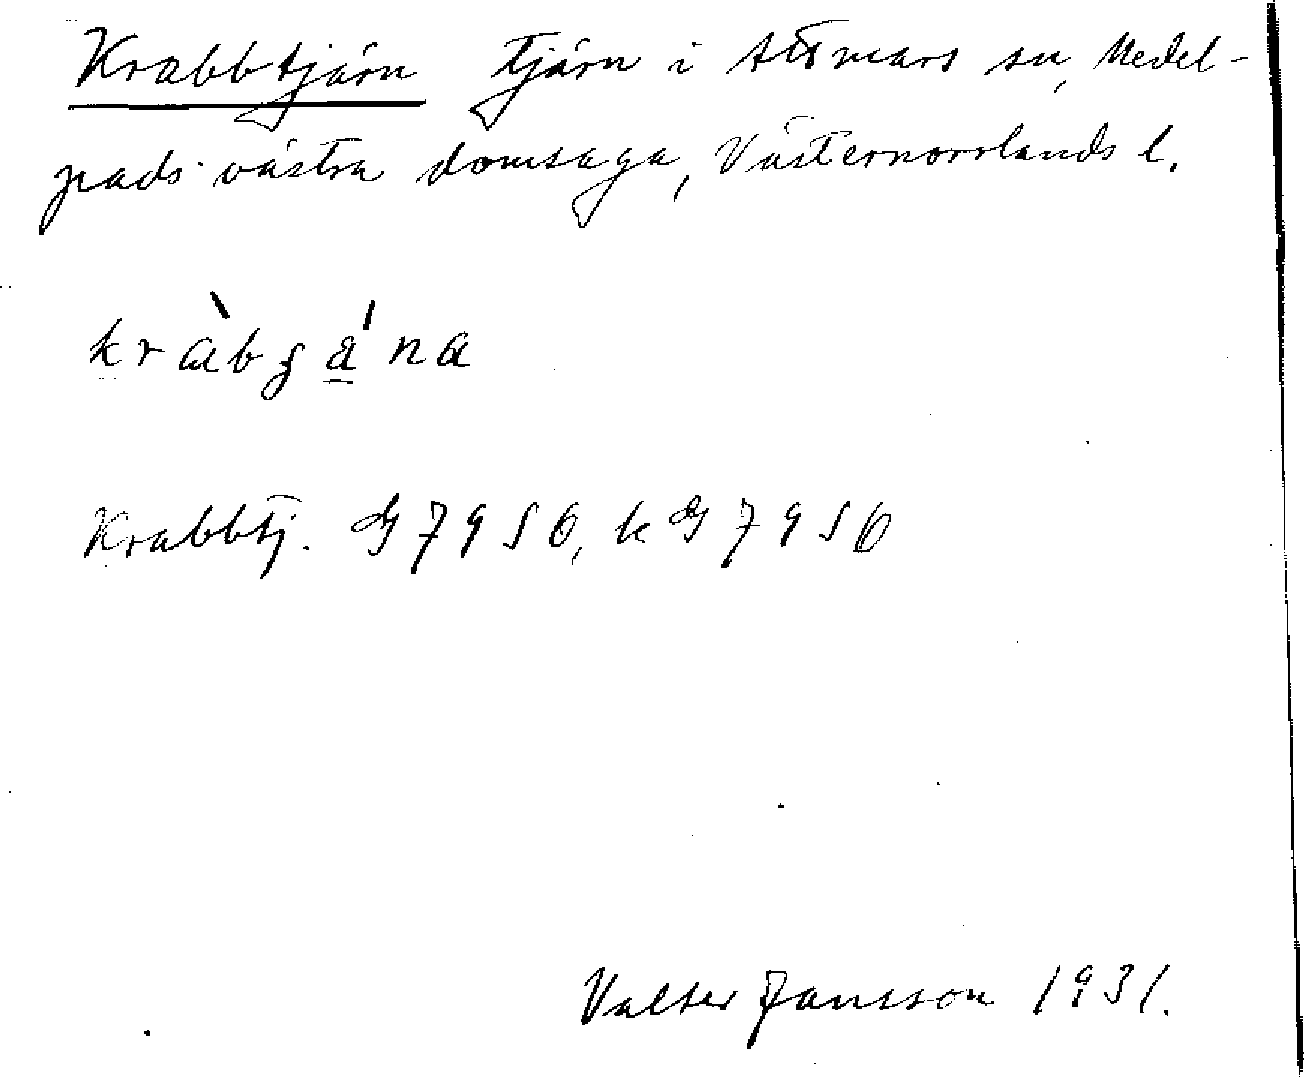 Krabbtjärn tjärn i Attmars sn, Medel-
pads västra domsaga, Västernorrlands l.
Krabbtj. G 7956, k G 7956
Valter Jansson 1931.